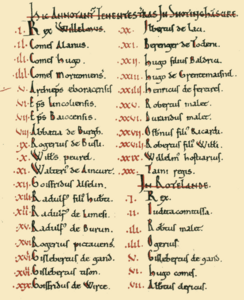 HIC ANNOTANT TENENTES TRAS IN SNOTINGHASCIRE.
.I. Rex Willelmus.
.II. Comes Alanus.
.III. Comes hugo.
.IIII. Comes moritoniens.
.V. Archieps eboracensis
.VI. Eps Lincoliensis.
.VII. Eps Baiocensis.
.VIII. Abbatia de Burgh.
.IX. Rogerius de Busli.
.X. Wills peurel.
.XI. Walteri de Aincurt.
.XII. Goisfridus Alselin.
.XIII. Radulf fili hubti.
.XIIII. Radulf de Limesi.
.XV. Radulf de Burun.
.XVI. Rogerius pictauensis
.XVII. Gislebertus de gand.
.XVIII. Gislebertus tison.
.XIX. Goisfridus de Wirce.
.XX. Ilbertus de Laci.
.XXI. Berenger de Todeni.
.XXII. hugo filius Baldrici.
.XXIII. hugo de Grentemaisnil.
.XXIIII. henricus de fereires.
.XXV. Robertus malet.
.XXVI. Durandus malet.
.XXVII. Osbernus fili Ricardi.
.XXVIII. Robertus fili Willi.
.XXIX. Willelm hostiarius.
.XXX. Taini regis.
IN ROTELANDE.
.I. Rex
.II. Iudita comitissa.
.III. Robertus malet.
.IIII. Ogerius
.V. Gislebertus de gand.
.VI. hugo comes.
.VII. Albertus clericus.